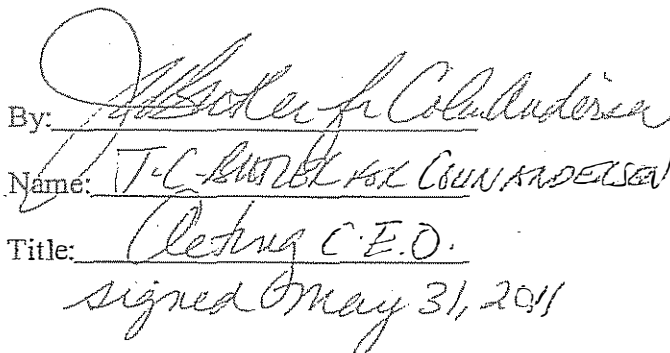 By: J C Butler for Colin Andersen
Name: J-C-BUTLER FOR COLIN ANDERSEN
Title: Acting C.E.O.
signed May 31, 2011